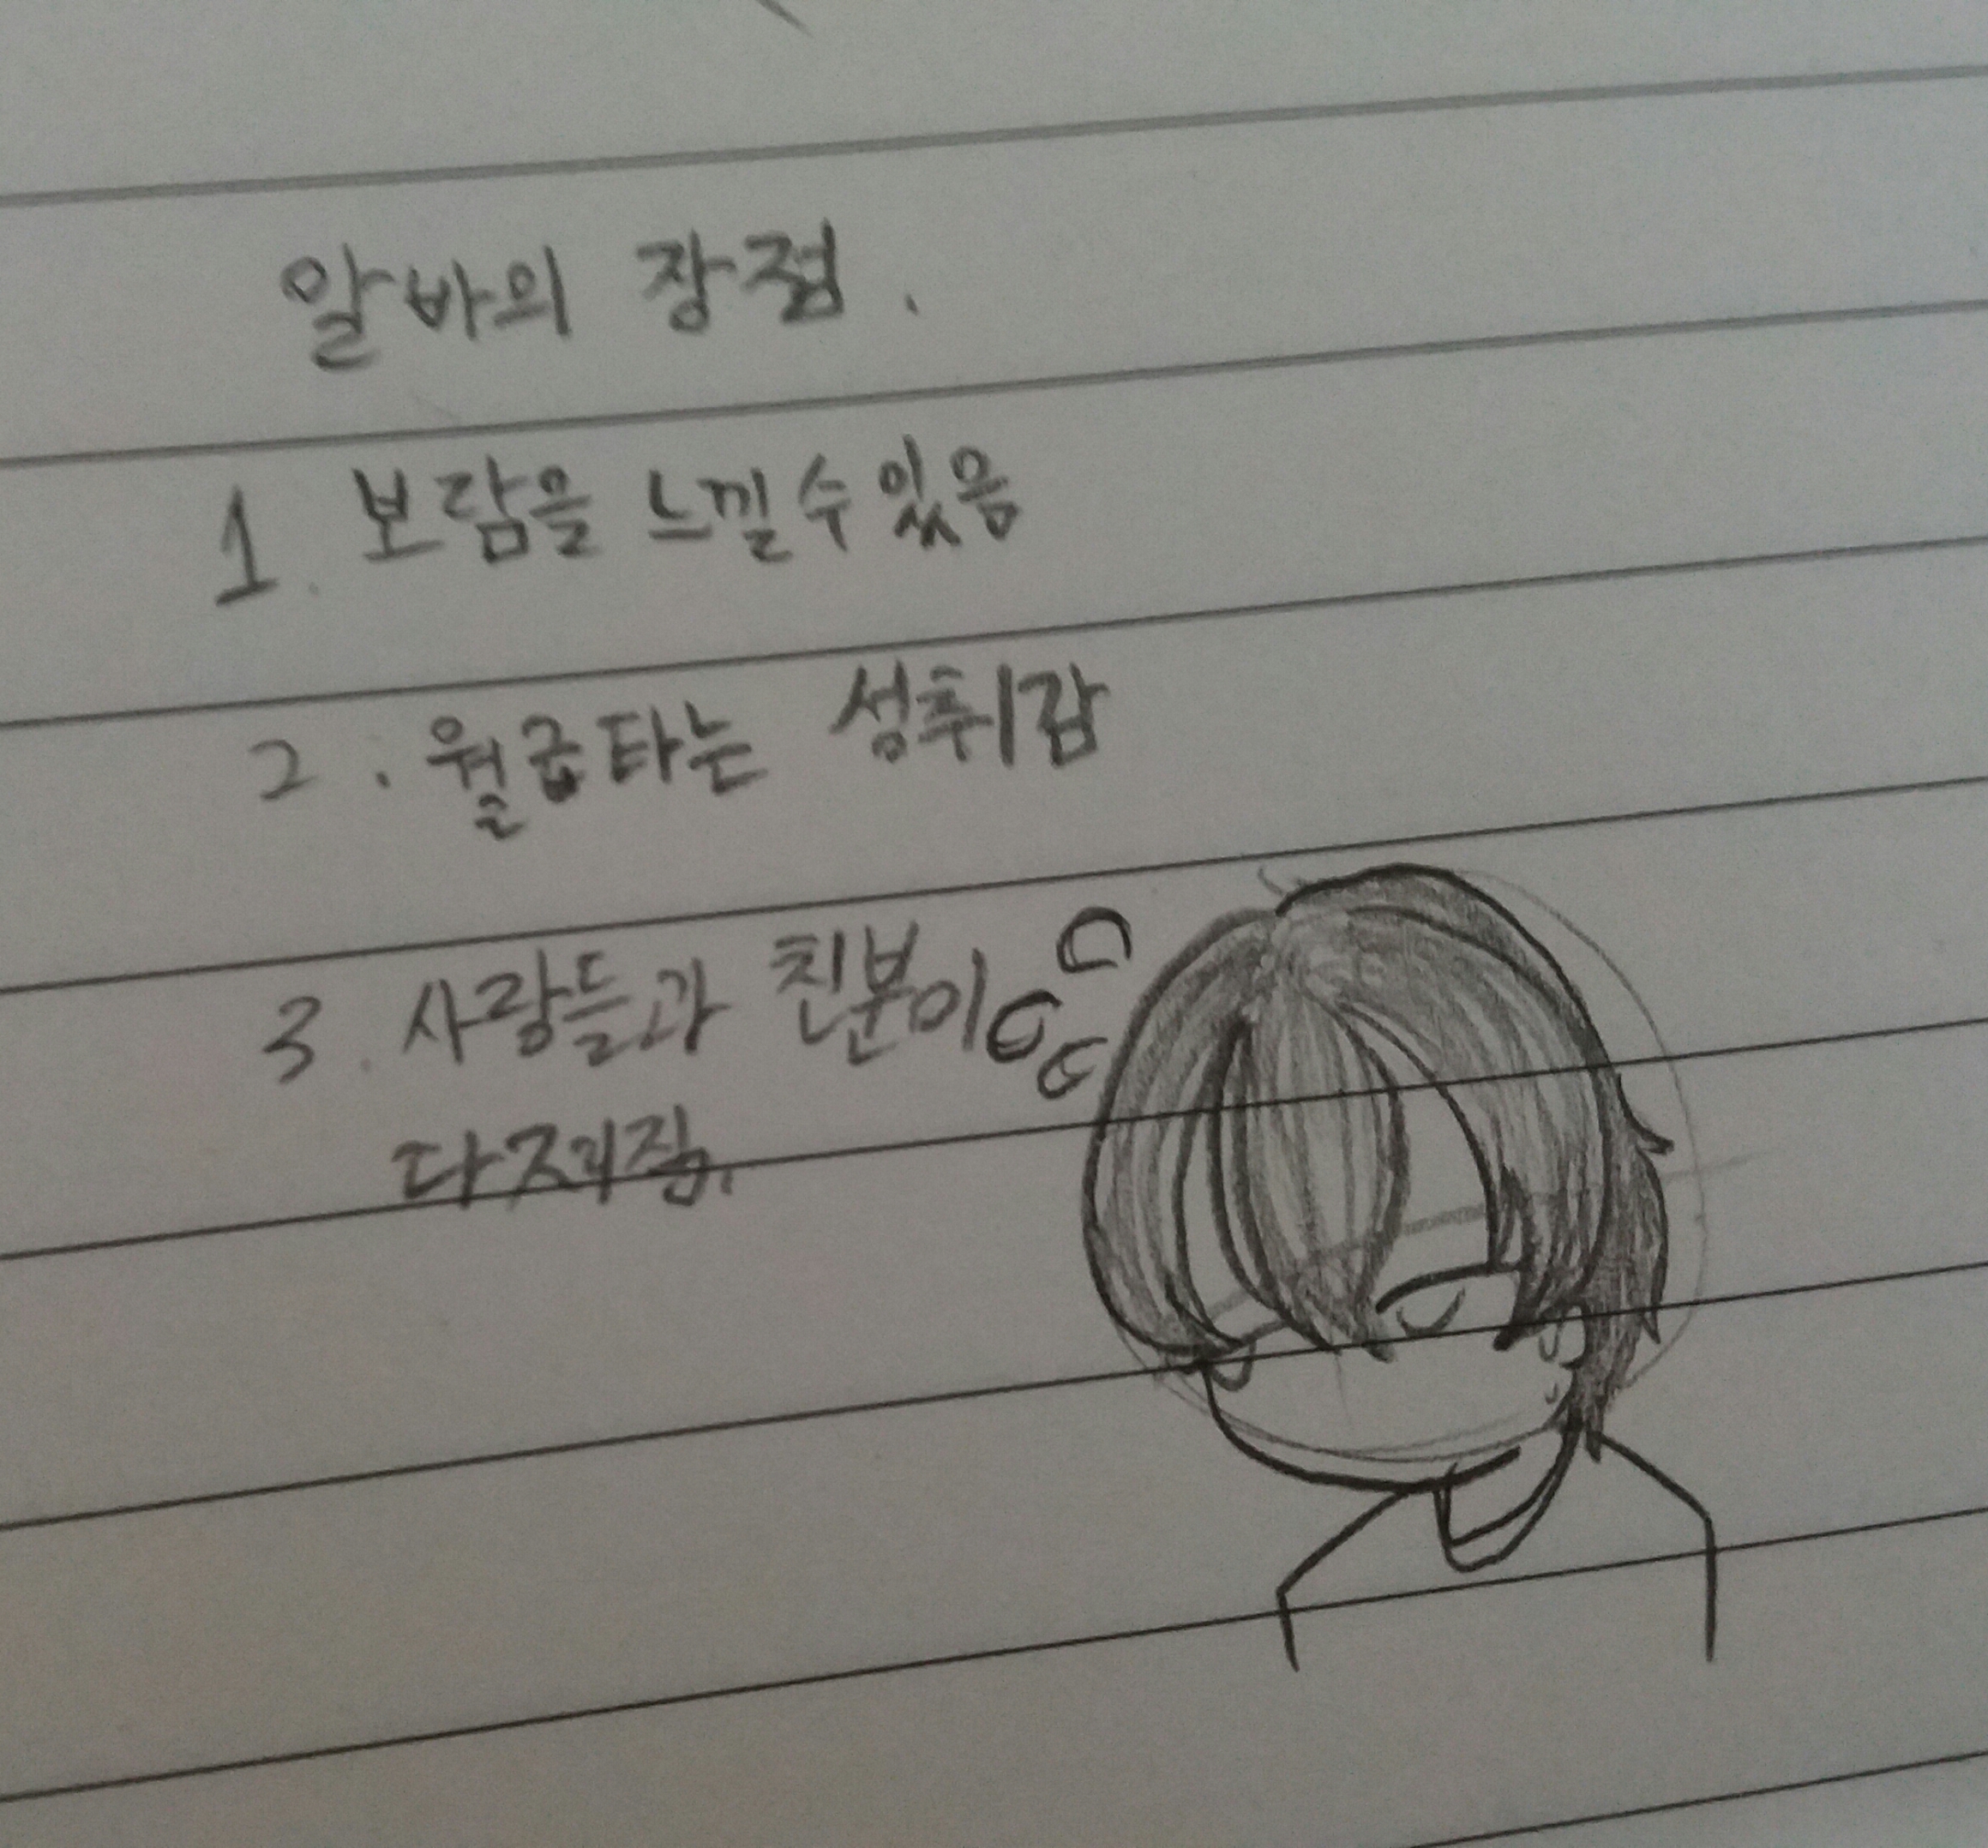 알바의 장점.
1. 보람을 느낄 수 있음
2. 월급타는 성취감
3. 사람들과 친분이
다져짐.